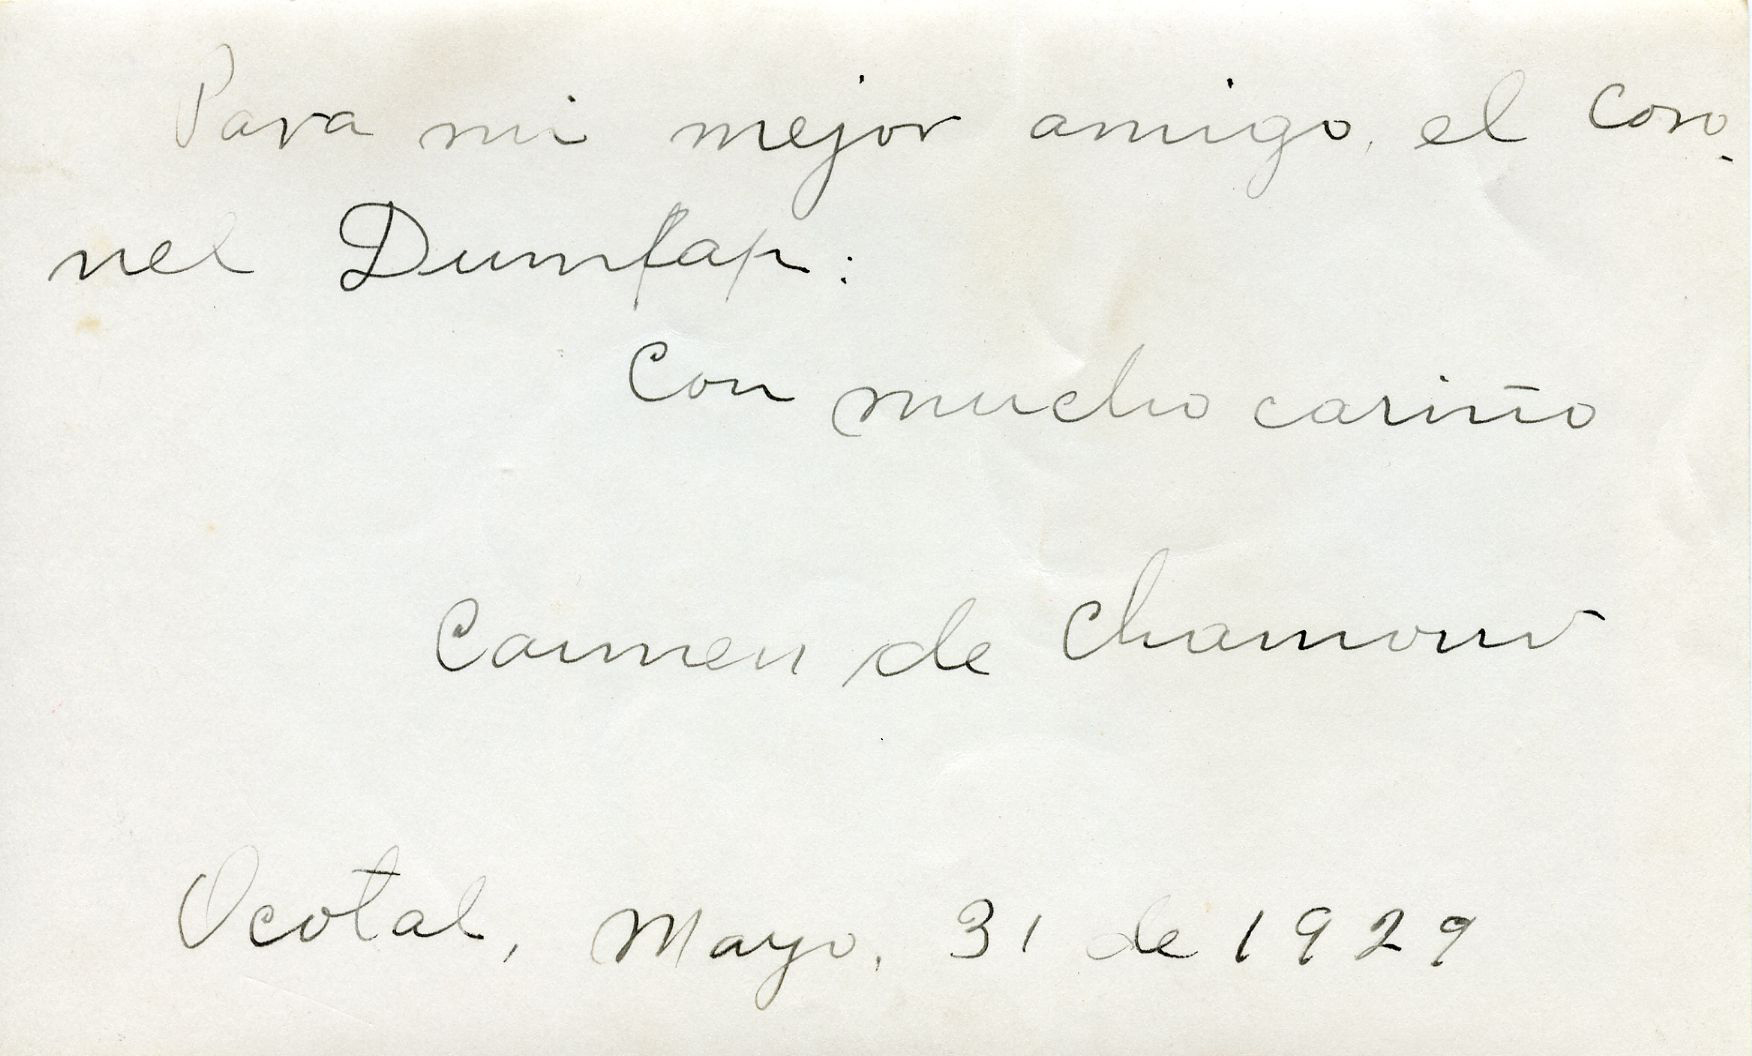 Para mi mejor amigo, el coro-
nel Dunlap:
Con mucho cariño
Carmen de Chamorro
Ocotal, Mayo, 31 de 1929